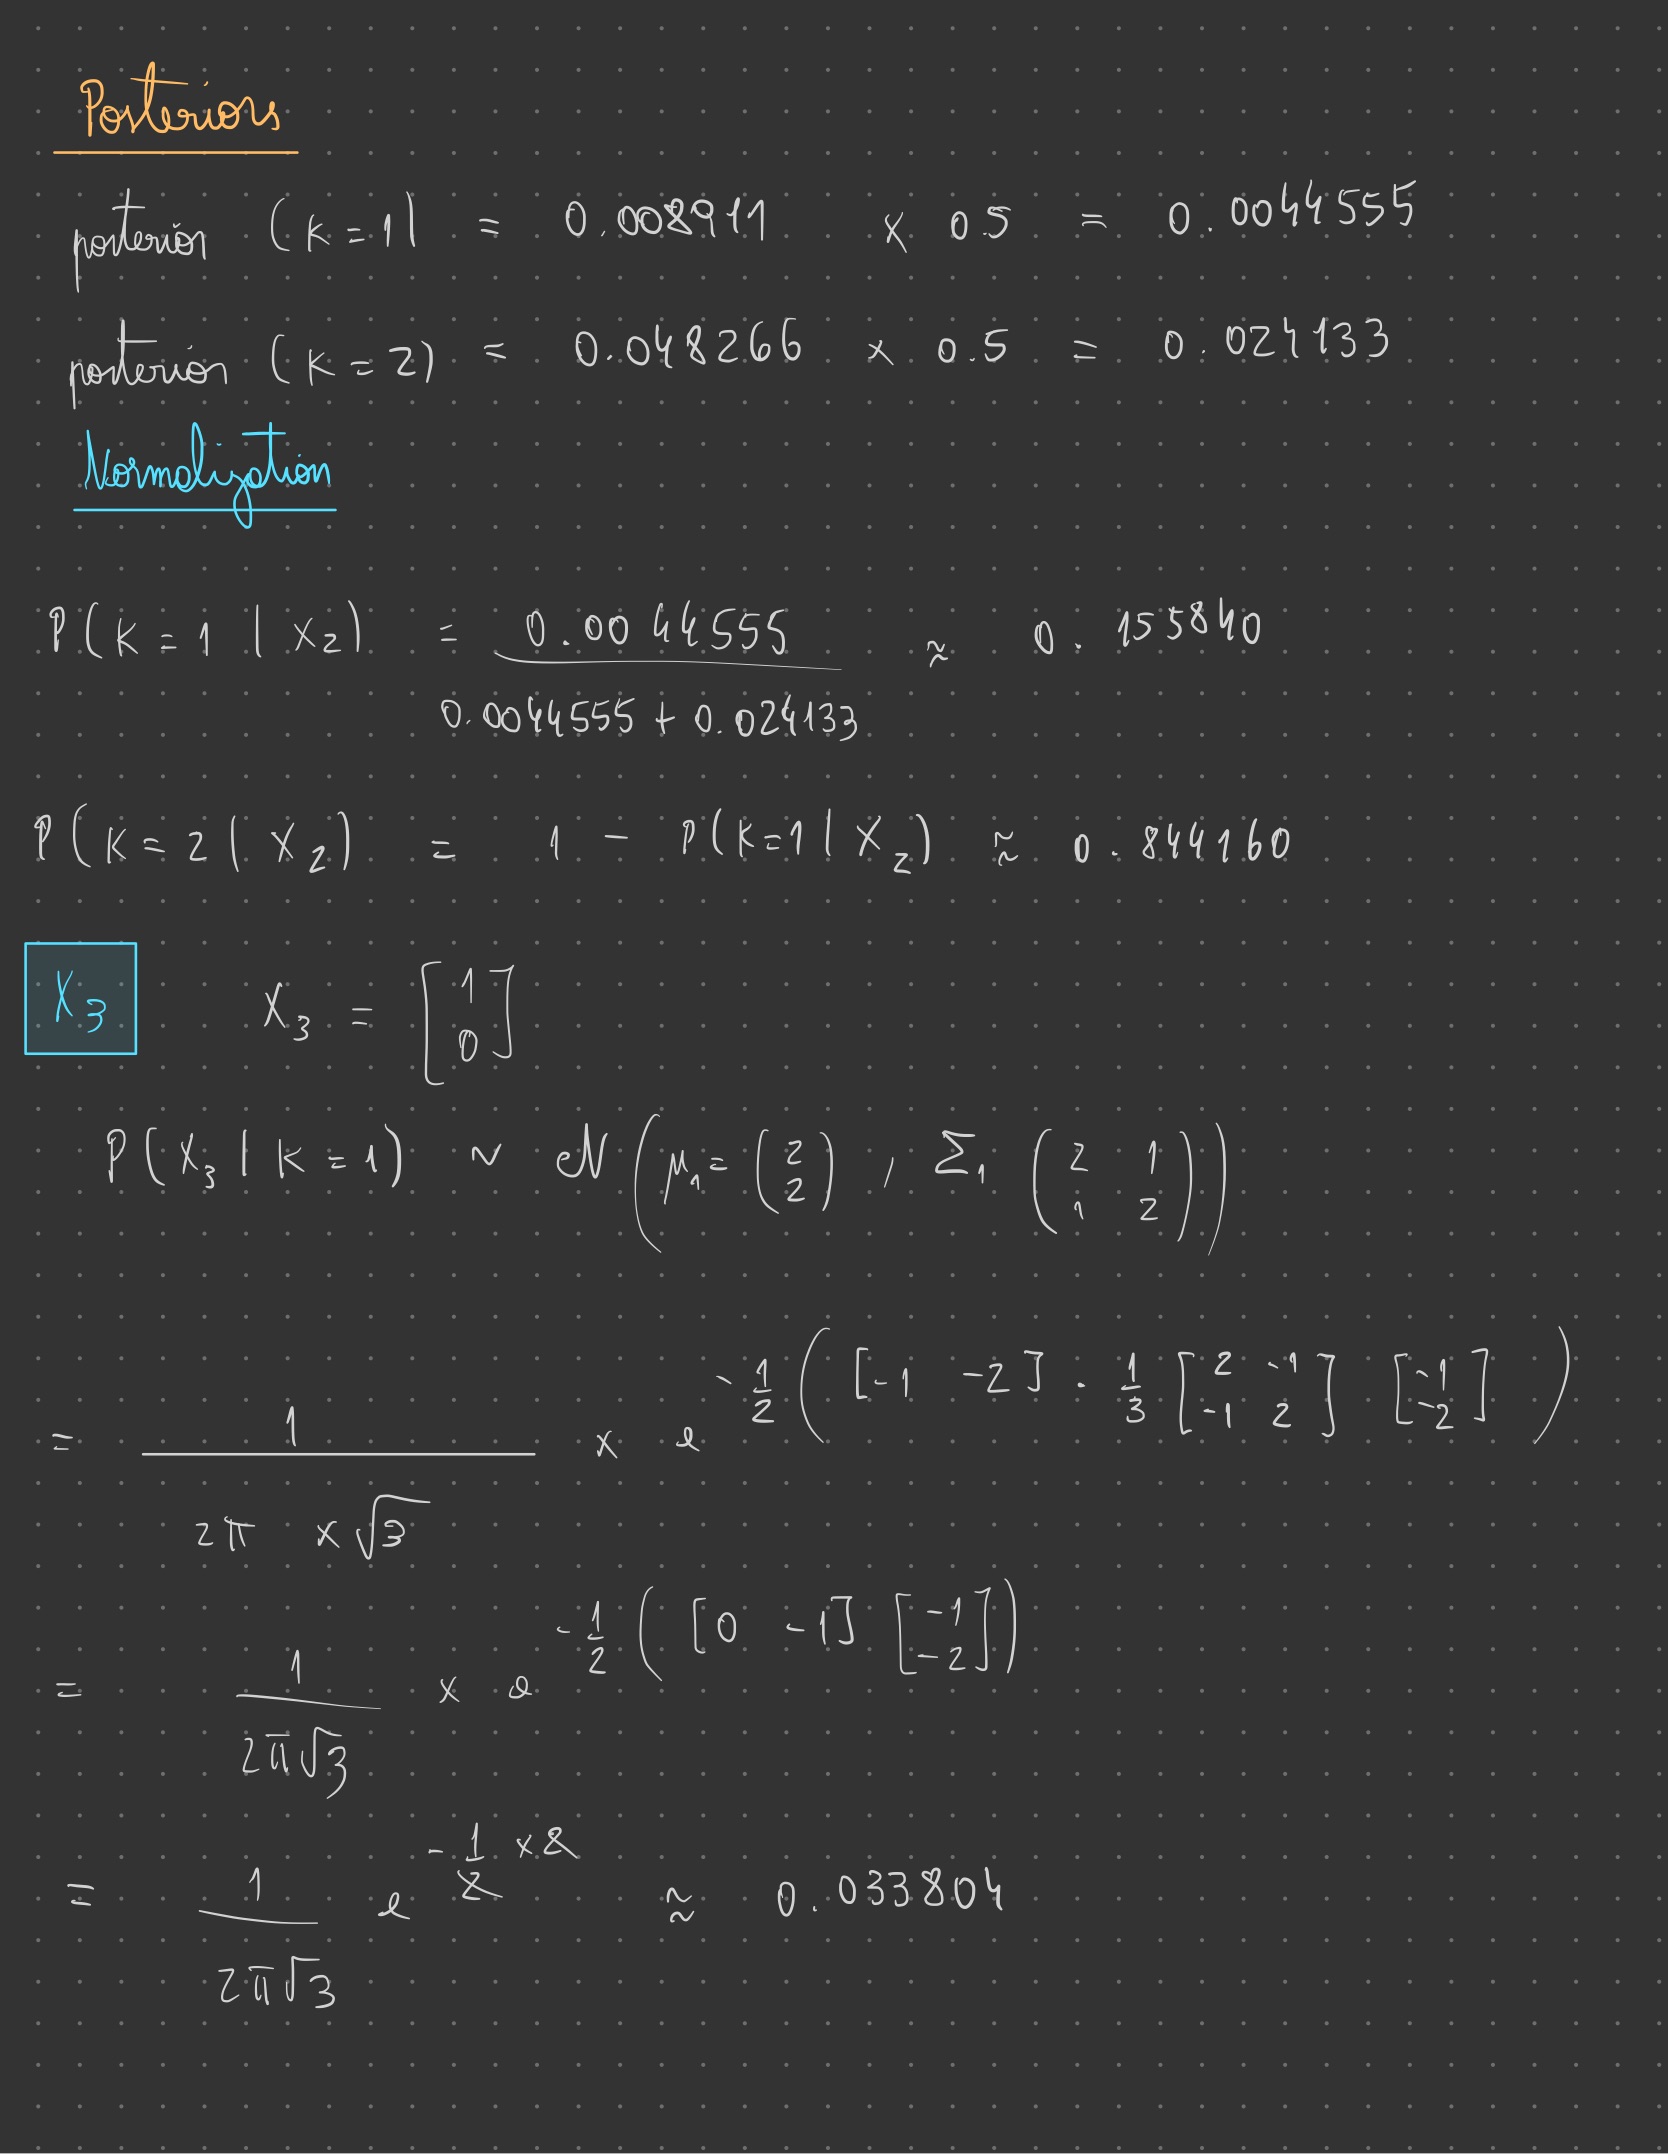 Posteriors
posterior (K=1) = 0.008911 × 0.5 = 0.0044555
posterior (K=2) = 0.048266 × 0.5 = 0.024133
Normalization
P(K=1 | X₂) = 0.0044555 / 0.0044555 + 0.024133 ≈ 0.155840
P(K=2 | X₂) = 1 − P(K=1 | X₂) ≈ 0.844160
X₃ X₃ = [1 0]
P(X₃ | K=1) ~ N(μ₁ = (2 2), Σ₁ (2 1 1 2))
= 1 / 2π × √3 × e^ -1/2 ([-1 -2] · 1/3 [2 -1 -1 2] [-1 -2])
= 1 / 2π√3 × e^ -1/2 ([0 -1] [-1 -2])
= 1 / 2π√3 e^ -1/2 × 2 ≈ 0.033804